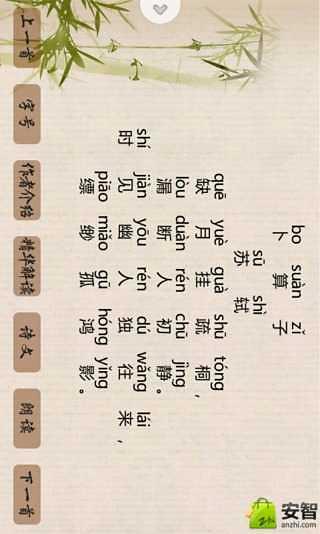 bo suàn zǐ
卜 算 子
sū shì
苏 轼
quē yuè guà shū tóng
缺 月 挂 疏 桐，
lòu duàn rén chū jìng
漏 断 人 初 静。
shí jiàn yōu rén dú wǎng lái
时 见 幽 人 独 往 来，
piāo miǎo gū hóng yǐng
缥 缈 孤 鸿 影。
上一首
字号
作者介绍
精华解读
诗文
朗读
下一首
安智
anzhi.com